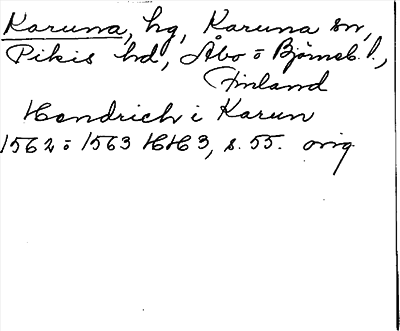 Karuna, hg, Karuna sn,
Pikis hd, Åbo o Björneb. l.,
Finland
Hendrich i Karun
1562 o 1563 HH 3, s. 55. orig